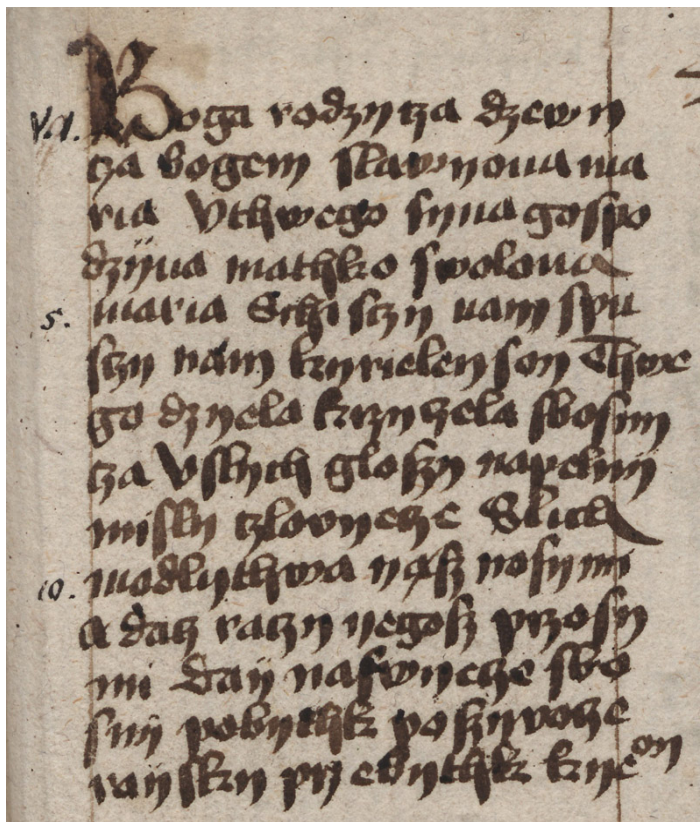 Va. Boga rodzycza dzewy
cza bogem slawyona ma
ria Vthwego syna gospo
dzyna mathko swolona
5. maria Schisczy nam spu
sczy nam kyrieleyson Thwe
go dzyela krzyczela bosny
cza Vslych glosy napelny
misly czlowyecze Slich
10. modlythwa yasz nosymi
a dacz raczy yegosz przosy
mi day naswyecze sbo
sny pobyth posywocze
raysky przebyth kyeon